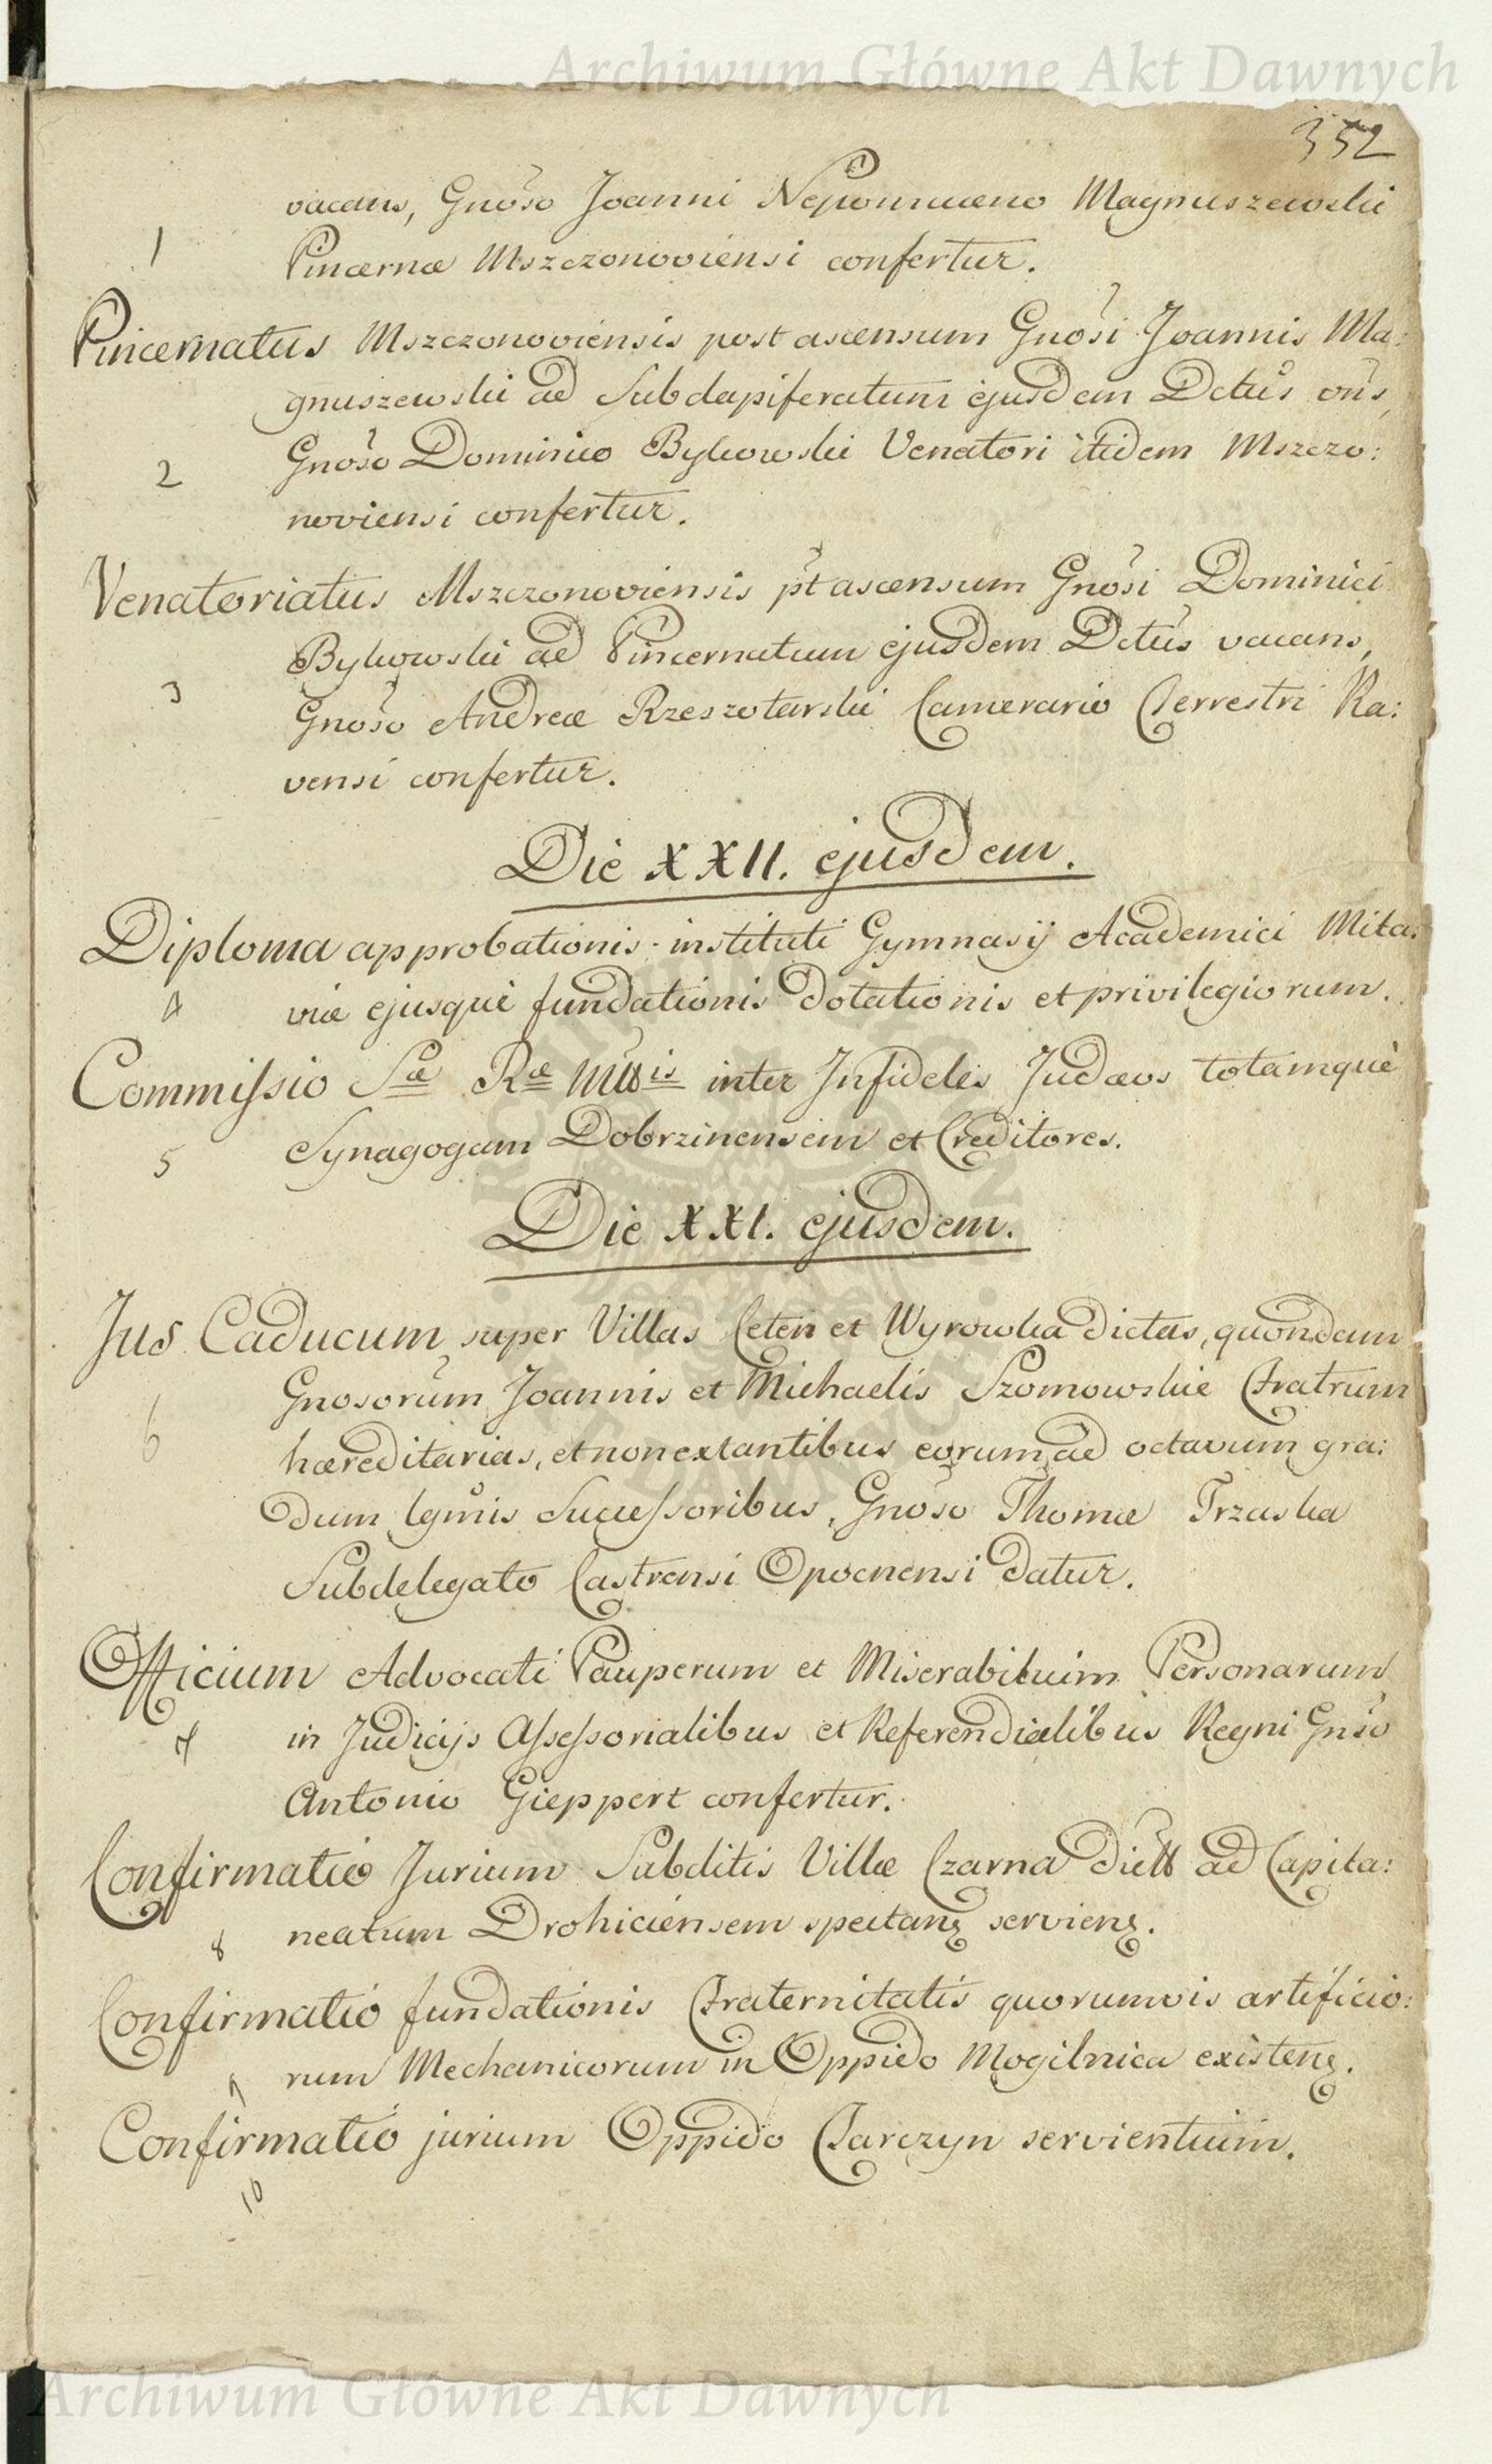 Archiwum Główne Akt Dawnych
352
vacans, Gnoso Joanni Nepomuceno Magnuszewski
1 Pincernæ Mszczonoviensi confertur.
Pincernatus Mszczonoviensis post ascensum Gnosi Joannis Ma:
gnuszewski ad Subdapiferatum ejusdem Dctus vns,
2 Gnoso Dominico Bykowski Venatori itidem Mszczo:
noviensi confertur.
Venatoriatus Mszczonoviensis pt ascensum Gnosi Dominici
Bykowski ad Pincernatum ejusdem Dctus vacans,
3 Gnoso Andreæ Rzeszotarski Camerario Terrestri Ra:
vensi confertur.
Die XXII. ejusdem.
Diploma approbationis instituti Gymnasij Academici Mita:
4 viæ ejusque fundationis dotationis et privilegiorum.
Commissio Sæ Ræ Mttis inter Infideles Judæos totamquè
5 Synagogam Dobrzinensem et Creditores.
Die XXI. ejusdem.
Jus Caducum super Villas Ceteń et Wyrowka dictas, quondam
6 Gnosorum Joannis et Michaelis Szomowskie Fratrum
hæreditarias, et non extantibus eorum ad octavum gra:
dum lgmis Successoribus, Gnoso Thomæ Trzaska
Subdelegato Castrensi Opocnensi datur.
Officium Advocati Pauperum et Miserabilium Personarum
7 in Judicijs Assessorialibus et Referendialibus Regni Gnso
Antonio Gieppert confertur.
Confirmatio Jurium Subditis Villæ Czarna ad Capita:
8 neatum Drohiciensem spectanz servienz.
Confirmatio fundationis Fraternitatis quorumvis artificio:
9 rum Mechanicorum in Oppido Mogilnica existenz.
Confirmatio jurium Oppido Tarczyn servientium.
10
Archiwum Główne Akt Dawnych